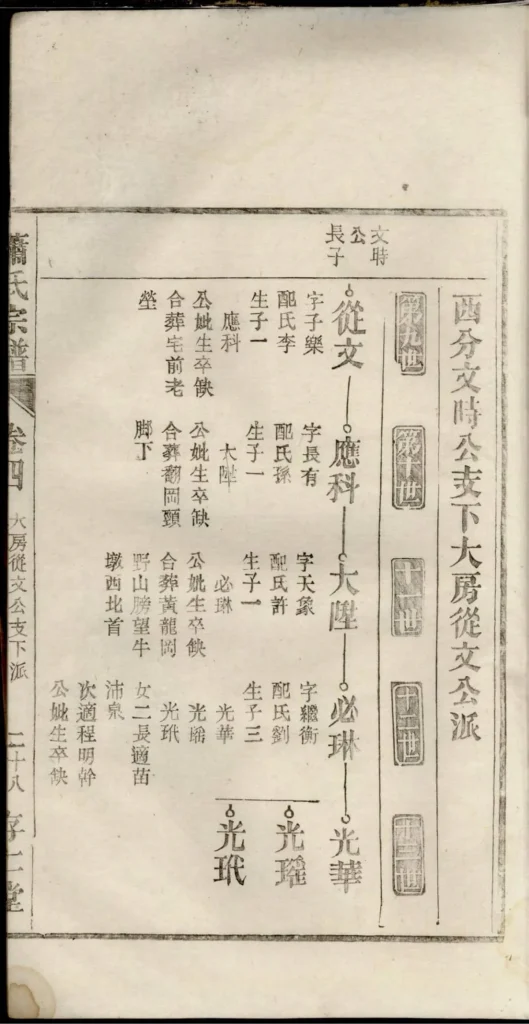 西分文時公支下大房從文公派
第九世
第十世
十一世
十二世
十三世
文時
公
長子
從文
字子樂
配氏李
生子一
應科
公妣生卒缺
合葬宅前老
塋
應科
字長有
配氏孫
生子一
大陞
公妣生卒缺
合葬翻岡頸
脚下
大陞
字天象
配氏許
生子一
必琳
公妣生卒缺
合葬黃龍岡
野山勝望牛
墩西北首
必琳
字繼衡
配氏劉
生子三
光華
光瑤
光玳
女二長適苗
沛泉
次適程明幹
公妣生卒缺
光華
光瑤
光玳
蕭氏宗譜
卷四
大房從文公支下派
二十八
存仁堂